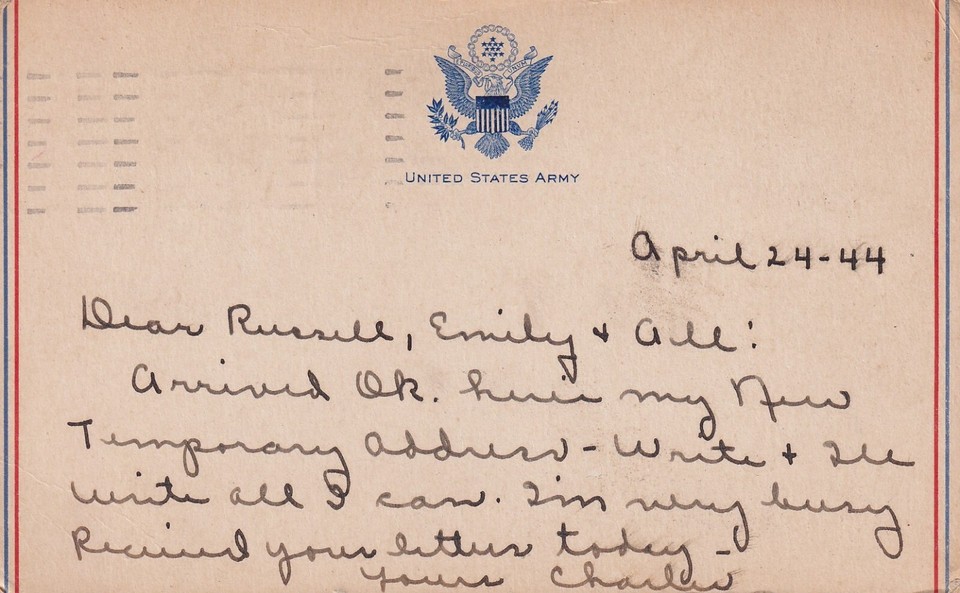 UNITED STATES ARMY
April 24-44
Dear Russell, Emily & All:
Arrived Ok. here my New
Temporary Address - Write & Ill
write all I can. I'm very busy
Received your letters today -
Yours Charles